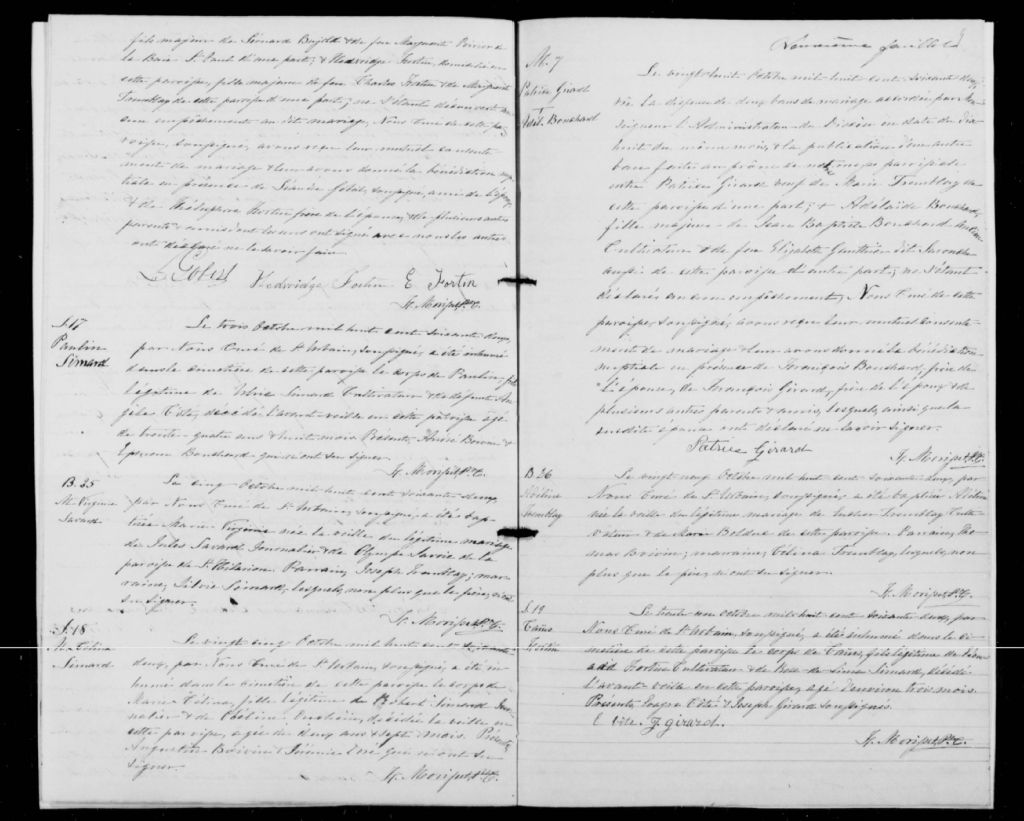 fils majeur de Léonard & de feu Marguerite
la Baie St Paul d'une part; & Hedwidge Fortin, domiciliée en
cette paroisse, fille majeure de feu Charles Fortin & de Marguerite
Tremblay de cette paroisse d'autre part; ne s'étant découvert au-
cun empêchement au dit mariage, Nous Curé de cette pa-
roisse, soussigné, avons reçu leur mutuel consente-
ment de mariage & leur avons donné la bénédiction nup-
tiale en présence de soussigné, ami de l'époux
& de Théléphore Fortin frère de l'épouse, & de plusieurs autres
parents & amis dont les uns ont signé avec nous les autres
ont déclaré ne le savoir faire.
Hedwidge Fortin E Fortin
H. Moripet Ptre
S. 17
Paulin
Simard
Le trois Octobre mil huit cent soixante deux,
par Nous Curé de St Urbain, soussigné, a été inhumé
dans le cimetière de cette paroisse le corps de Paulin, fils
légitime de Simard Cultivateur & de défunte An-
gèle Côté, décédé l'avant-veille en cette paroisse âgé
de trente-quatre ans & huit mois. Présents, &
Bouchard qui n'ont su signer.
H. Moripet Ptre
B. 25
M. Virginie
Savard
Le cinq Octobre mil huit cent soixante deux,
par Nous Curé de St Urbain, soussigné, a été bap-
tisée Marie Virginie née la veille du légitime mariage
de Jules Savard Journalier & de Olympe Savoie de la
paroisse de St Hilarion. Parrain, Joseph Tremblay; mar-
raine, Simard, lesquels, non plus que le père, n'ont
su signer.
H. Moripet Ptre
S. 18
M. Célina
Simard
Le vingt cinq Octobre mil huit cent soixante
deux, par Nous Curé de St Urbain, soussigné, a été in-
humé dans le cimetière de cette paroisse le corps de
Marie Célina, fille légitime de Simard Jour-
nalier & de décédée la veille en
cette paroisse, âgée de deux ans & sept mois. Présents
Augustin Boivin & qui n'ont su
signer.
H. Moripet Ptre
feuillet
M. 7
Patrice Girard
&
Adél. Bouchard
Le vingt huit Octobre mil huit cent soixante deux,
vu la dispense de deux bans de mariage accordée par Mon-
seigneur l'Administrateur du Diocèse en date du dix
huit du même mois, & la publication d'un autre
ban faite au prône de notre messe paroissiale
entre Patrice Girard veuf de Marie Tremblay de
cette paroisse d'une part; & Adélaide Bouchard,
fille majeure de Jean Baptiste Bouchard
Cultivateur & de feu Elizabeth Gauthier dit Larouche
aussi de cette paroisse d'autre part; ne s'étant
déclaré aucun empêchement, Nous Curé de cette
paroisse, soussigné, avons reçu leur mutuel consente-
ment de mariage & leur avons donné la bénédiction
nuptiale en présence de François Bouchard, frère de
l'épouse, de François Girard, frère de l'époux & de
plusieurs autres parents & amis, lesquels, ainsi que la
susdite épouse ont déclaré ne savoir signer.
Patrice Girard
H. Moripet Ptre
B. 26
Tremblay
Le vingt neuf Octobre mil huit cent soixante deux, par
Nous Curé de St Urbain, soussigné, a été baptisé
née la veille du légitime mariage de Tremblay Culti-
vateur & de Marie Bolduc de cette paroisse. Parrain, Tho-
mas Boivin; marraine, Célina Tremblay, lesquels, non
plus que le père, n'ont su signer.
H. Moripet Ptre
S. 19
Fortin
Le trente un Octobre mil huit cent soixante deux, par
Nous Curé de St Urbain, soussigné, a été inhumé dans le ci-
metière de cette paroisse le corps de fils légitime de Léon-
ard Fortin Cultivateur & de Rose de Lima Simard, décédé
l'avant-veille en cette paroisse, âgé d'environ trois mois.
Présents Côté & Joseph Girard soussignés.
E Côté J. girard.
H. Moripet Ptre